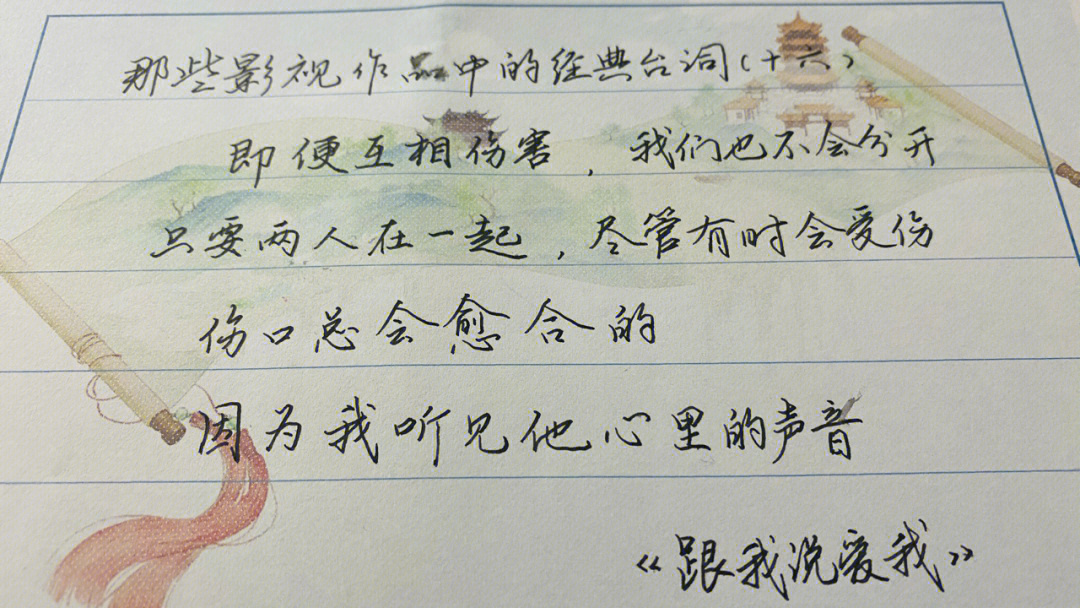 那些影视作品中的经典台词(十六)
即便互相伤害,我们也不会分开
只要两人在一起,尽管有时会受伤
伤口总会愈合的
因为我听见他心里的声音
《跟我说爱我》